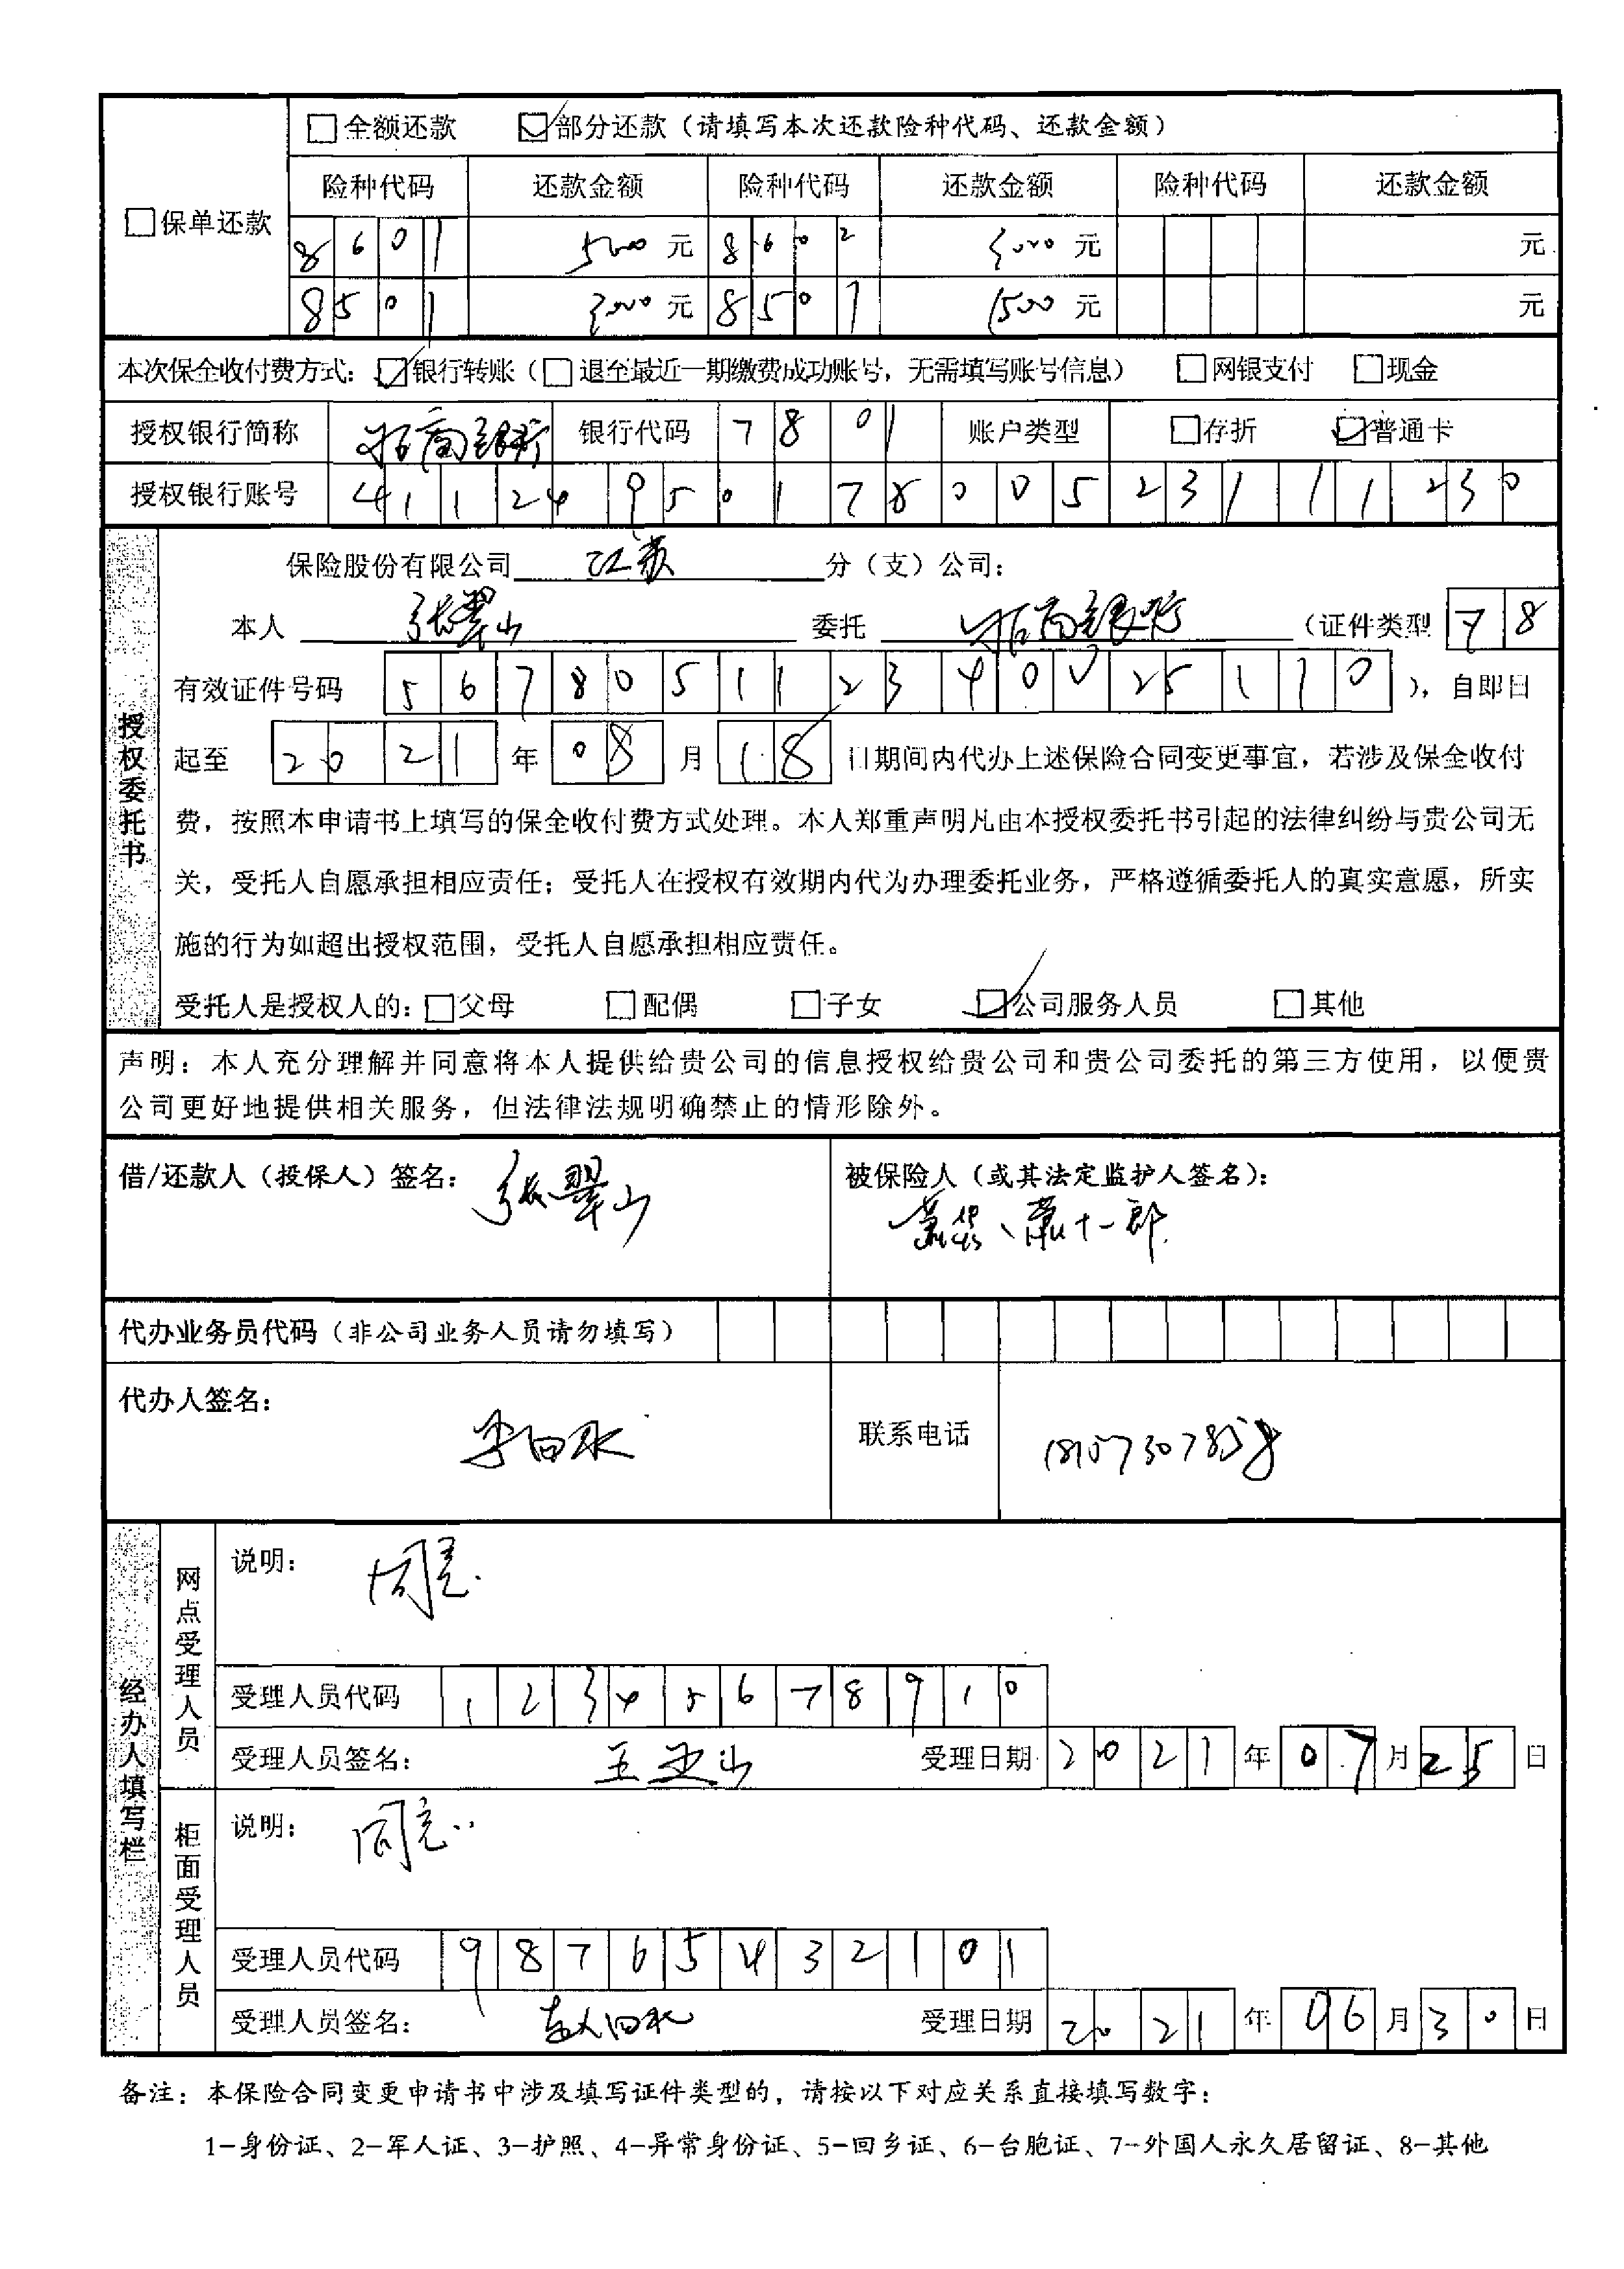 □全额还款 ☑部分还款（请填写本次还款险种代码、还款金额）
险种代码 还款金额 险种代码 还款金额 险种代码 还款金额
□保单还款
8601 5000元 8602 5000元 元
8501 3000元 8501 1500元 元
本次保全收付费方式：☑银行转账（□退至最近一期缴费成功账号，无需填写账号信息） □网银支付 □现金
授权银行简称 招商银行 银行代码 7801 账户类型 □存折 ☑普通卡
授权银行账号 4112495017800523111230
授权委托书
保险股份有限公司 江苏 分（支）公司：
本人 张翠山 委托 招商银行 （证件类型 78
有效证件号码 567805112340025110 ），自即日
起至 2021年08月18日期间内代办上述保险合同变更事宜，若涉及保全收付
费，按照本申请书上填写的保全收付费方式处理。本人郑重声明凡由本授权委托书引起的法律纠纷与贵公司无
关，受托人自愿承担相应责任；受托人在授权有效期内代为办理委托业务，严格遵循委托人的真实意愿，所实
施的行为如超出授权范围，受托人自愿承担相应责任。
受托人是授权人的：□父母 □配偶 □子女 ☑公司服务人员 □其他
声明：本人充分理解并同意将本人提供给贵公司的信息授权给贵公司和贵公司委托的第三方使用，以便贵
公司更好地提供相关服务，但法律法规明确禁止的情形除外。
借/还款人（投保人）签名： 张翠山 被保险人（或其法定监护人签名）：
、萧十一郎
代办业务员代码（非公司业务人员请勿填写）
代办人签名： 李白水 联系电话
经办人填写栏
网点受理人员
说明： 同意.
受理人员代码 12345678910
受理人员签名： 王 山 受理日期 2021年07月25日
柜面受理人员
说明： 同意..
受理人员代码 98765432101
受理人员签名： 受理日期 2021年06月30日
备注：本保险合同变更申请书中涉及填写证件类型的，请按以下对应关系直接填写数字：
1-身份证、2-军人证、3-护照、4-异常身份证、5-回乡证、6-台胞证、7-外国人永久居留证、8-其他